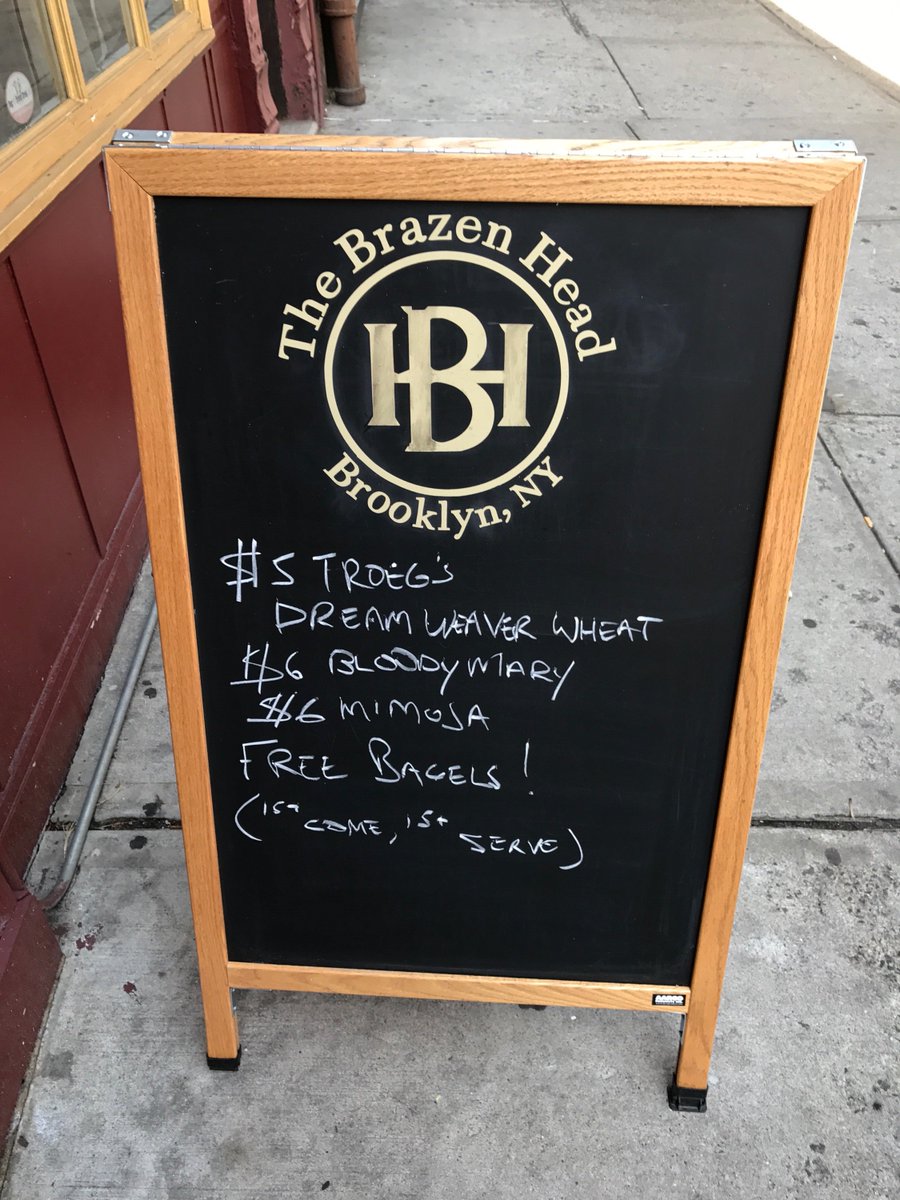 The Brazen Head
HB
Brooklyn, NY
$5 TROEG'S
DREAM WEAVER WHEAT
$6 BLOODY MARY
$6 MIMOSA
FREE BAGELS!
(1ST COME, 1ST SERVE)
AARCO